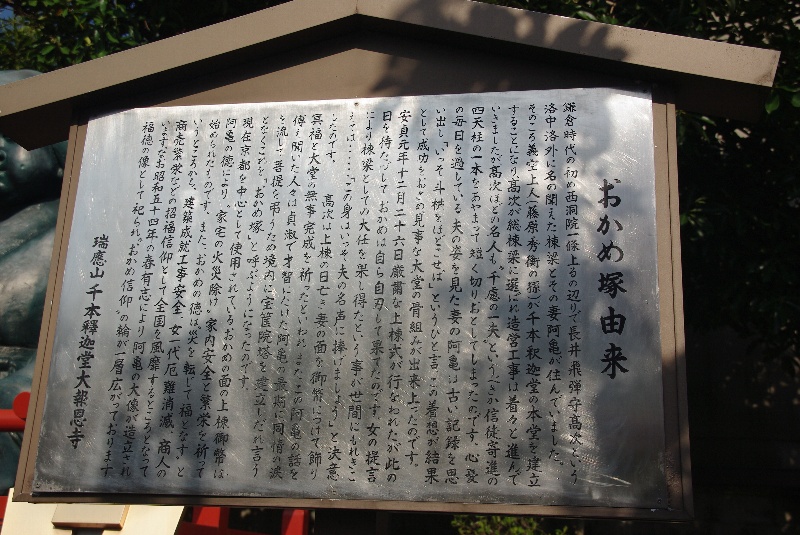 おかめ塚由来
鎌倉時代の初め西洞院一條上るの辺りで長井飛彈守高次という
洛中洛外に名の聞えた棟梁とその妻阿亀が住んでいました。
そのころ義空上人(藤原秀衡の孫)が千本釈迦堂の本堂を建立
することになり高次が総棟梁に選ばれ造営工事は着々と進んで
いきましたが高次ほどの名人も"千慮の一失"というべきか信徒寄進の
四天柱の一本をあやまって短く切りおとしてしまったのです。心憂
の毎日を過している夫の姿を見た妻の阿亀は古い記録を思
い出し、"いっそ斗栱をほどこせば"というひと言、この着想が結果
として成功をおさめ見事な大堂の骨組みが出来上ったのです。
安貞元年十二月二十六日厳粛な上棟式が行なわれたが此の
日を待たずしておかめは自ら自刃して果てたのです。女の提言
により棟梁としての大任を果し得たという事が世間にもれきこ
えては‥‥"この身はいっそ夫の名声に捧げましょう"と決意
したのです。 高次は上棟の日亡き妻の面を御幣につけて飾り
冥福と大堂の無事完成を祈ったといわれ、またこの阿亀の話を
傳え聞いた人々は貞淑で才智にたけた阿亀の最期に同情の涙
を流して菩提を弔うため境内に宝篋院塔を建立しだれ言う
となくこれを"おかめ塚"と呼ぶようになったのです。
現在京都を中心として使用されているおかめの面の上棟御幣は
阿亀の徳により、"家宅の火災除け""家内安全と繁栄"を祈って
始められたものです。また、おかめの徳は"災を転じて福となす"と
いうところから、建築成就、工事安全、女一代厄難消滅、商人の
商売繁栄などの招福信仰として全国を風靡するところとなって
いますなお昭和五十四年の春有志により阿亀の大像が造立され
福徳の像として祀られ"おかめ信仰"の輪が一層広がっております
瑞應山千本釋迦堂大報恩寺